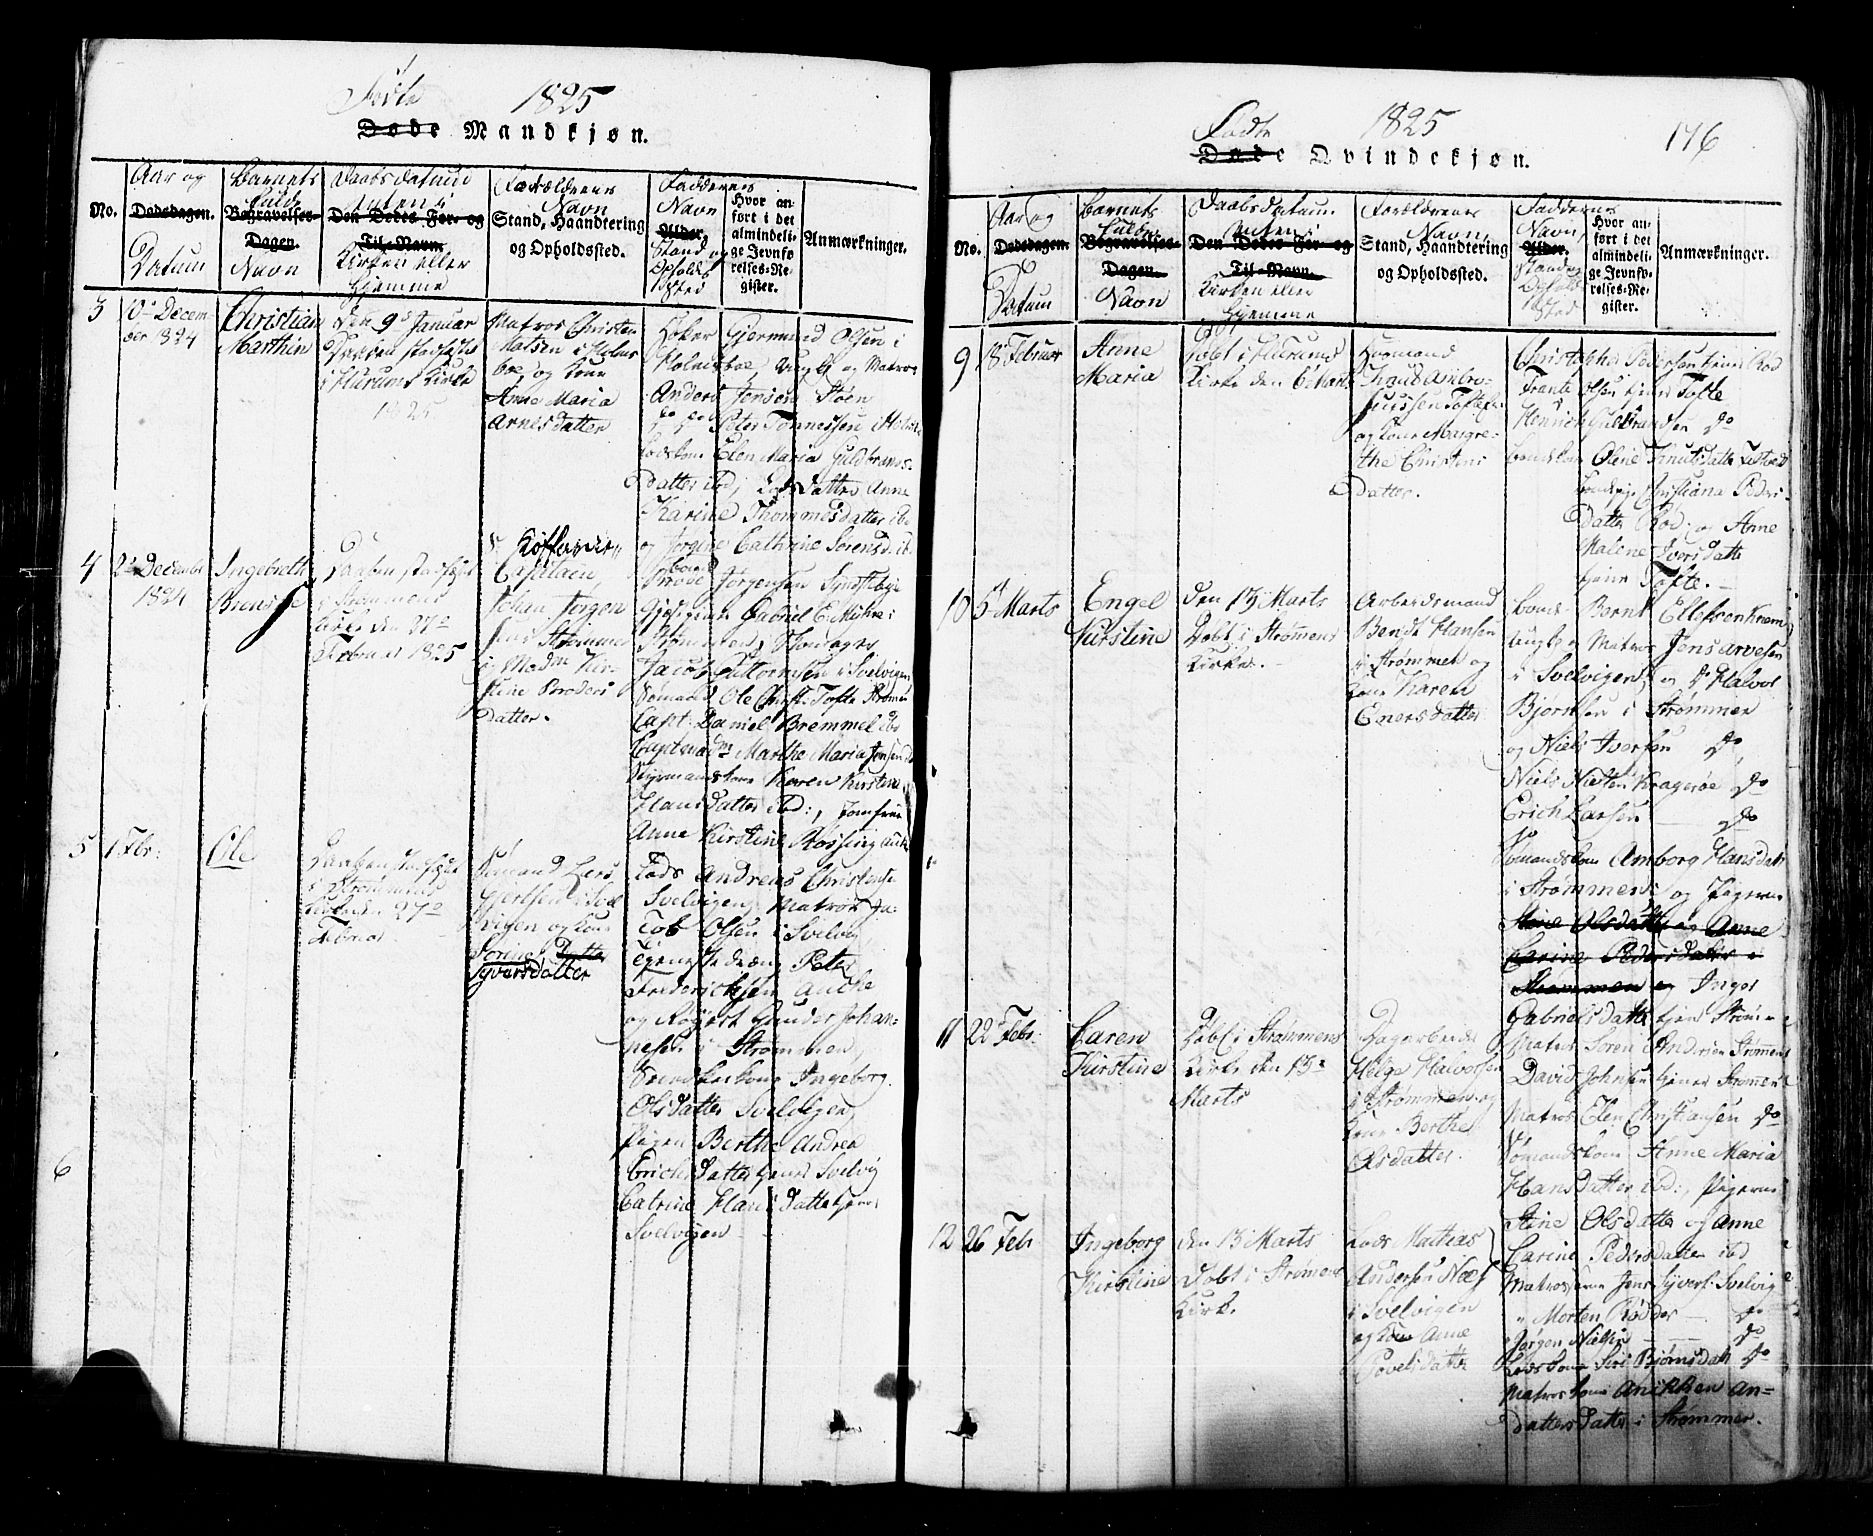 Fødte 1825
Døde Mandkjøn.
No.
Aar og
Dødsdagen.
Datum
Barnets
fulde
Begravelses-
Dagen.
Navn
Daabsdatum
enten i
Den Dødes For- og
Til-Navn.
Kirken eller
Hjemme
Forældrenes
Navn
Stand, Haandtering
og Opholdssted.
Faddernes
Navn
Alder.
Stand og
Opholds
sted
Hvor an-
ført i det
almindeli-
ge Jevnfø-
relses-Re-
gister.
Anmærkninger.
3
10de Decem-
ber 1824
Christian
Marthin
den 9de Januar
Daaben stadfæstet
i Hurums Kirke
1825
Matros Christen
Matsen i Holms
boe, og kone
Anne Maria
Arnesdatter
Gjermund Olsen i
Holmsboe, Ungk. og Matros
Anders Jensen Støen
Peter Tønnessen i Holms
Lodskone Elen Maria Guldbrands-
datter ibd, Lodsdatter Anne
Karine Thommesdatter ibd
og Jørgine Cathrine Sørensd. ibd
4
2de December
1824
Ingebreth
Daaben stadfæstet
i Strømmens
Kirke den 27de
Februar 1825
Capitain,
Johan Jørgen
i
Kir-
stine Broders
datter.
Jørgensen
Gabriel
Strømmen,
Jacob Guttormsen i Svelvigen
Sømand Ole Christ: Tofte Strømm
Capt: Daniel Bremmel ibd
Marthe Maria Jensen
Styrmandskone Karen Kirstine
Hansdatter ibd:, Jomfrue
Anne Kirstine Røssing
5
1 Febr:
Ole
Daaben stadfæstet
i Strømmens
Kirke den 27de
Februar
Sømand Lars
i Svel
vigen og kone
Sørine Datter
Syversdatter
Lods Andreas Christense
Svelvigen, Matros Ja-
cob Olsen i Svelvig
Tjenestedreng Peter
Frederichsen
og Gunder Johan-
nesen i Strømmen,
Ingeborg
Olsdatter Svelvigen,
Pigen Berthe Andrea
Erichsdatter tjener Svelvig
Catrine Hansdatter tjener
Svelvigen
6
Fødte 1825
176
Døde Qvindekjøn.
No.
Aar og
Dødsdagen.
Datum
Barnets
fulde
Begravelses-
Dagen.
Navn
Daabsdatum
enten i
Den Dødes For- og
Til-Navn.
Kirken eller
Hjemme
Forældrenes
Navn,
Stand, Haandtering
og Opholdssted.
Faddernes
Navn,
Alder.
Stand og
Opholds
sted
Hvor an-
ført i det
almindeli-
ge Jevnfø-
relses-Re-
gister.
Anmærkninger.
9
18 Februar
Anne
Maria
Døbt i Hurums
Kirke den 6 Marts
Huusmand
Knud Ambro-
siussen Tofte
og kone Margre-
the Christens
datter.
Christopher Pedersen tjener Rød
Frants Olsen tjener Tofte
Henrich Guldbrandsen do
Olene Knudsdatter
Christiana Peders-
datter Rød og Anne
Malene Iversdatter
tjener Tofte.
10
5 Marts
Engel
Kirstine
den 13 Marts
Døbt i Strømmens
Kirke.
Arbeidsmand
Bendt Hansen
i Strømmen og
kone Karen
Enersdatter
Bernt Ellefsen
Matros Jens Arvesen
i Svelvigen, og do Halvor
Bjørnsen i Strømmen
og Niels Iversen do
Niels Nielsen Kragerøe do
Erich Larsen do
Sømandskone Amborg Hansdatter
i Strømmen, og Pigerne
Stine Olsdatter og Anne
Carine Pedersdatter i
Strømmen og Inger
Gabrielsdatter tjener Strømm
11
22 Febr:
Caren
Kirstine
Døbt i Strømmens
Kirke den 13de
Marts
Dagarbeider
Helge Halvorsen
i Strømmen og
kone Berthe
Olsdatter.
Matros Søren Andersen Strømmen
David Johnsen tjener Strømmen
Matros Elen Christiansen do
Sømandskone Anne Maria
Hansdatter ibd:, Pigerne
Stine Olsdatter og Anne
Carine Pedersdatter ibd
12
26 Febr
Ingeborg
Kirstine
den 13 Marts
Døbt i Strømmens
Kirke
Lods Mathias
Andersen Næs
i Svelvigen
og kone Anne
Povelsdatter
Matroserne Jens Syvers. Svelvig
" Morten Rødder do
" Jørgen Nielsen do
Lodskone Siri Bjørnsdatter do
Matroskone Anikken An-
dattersdatter i Strømmen.